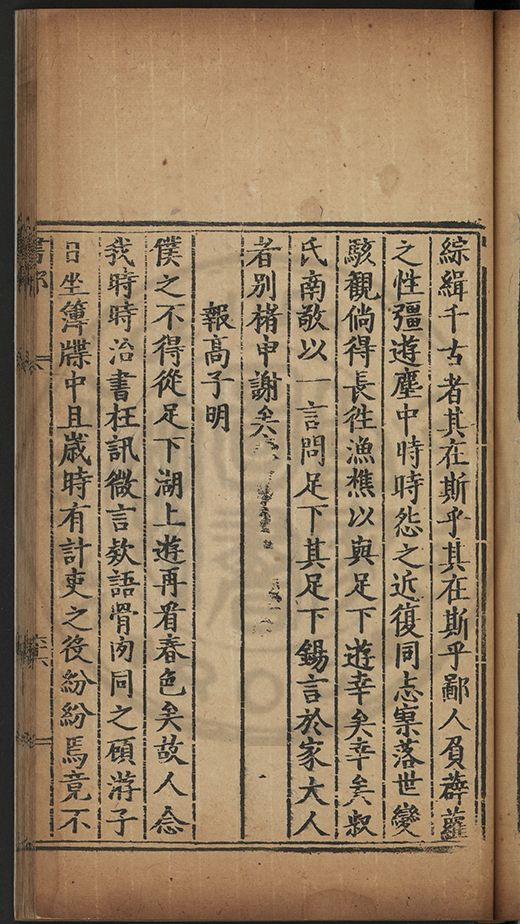 綜緝千古者其在斯乎其在斯乎鄙人負薜蘿
之性彊遊塵中時時怨之近復同志寡落世變
駭觀倘得長徃漁樵以與足下遊幸矣幸矣叔
氏南敢以一言問足下其足下錫言於家大人
者別楮申謝矣
報高子明
僕之不得從足下湖上遊再看春色矣故人念
我時時治書枉訊微言欵語骨肉同之碩游子
日坐簿牒中且歲時有計吏之役紛紛焉竟不